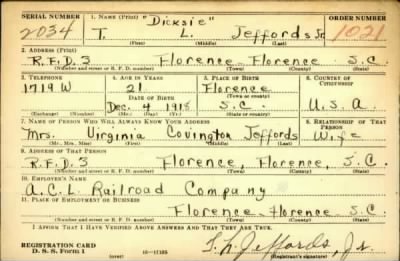 SERIAL NUMBER 1. NAME (Print) "Dicksie" ORDER NUMBER
2034 T. L. Jeffords Jr 1021
(First) (Middle) (Last)
2. ADDRESS (Print)
R.F.D. 3 Florence - Florence S.C.
(Number and street or R. F. D. number) (Town) (County) (State)
3. TELEPHONE 4. AGE IN YEARS 5. PLACE OF BIRTH 6. COUNTRY OF CITIZENSHIP
1719 W 21 Florence
DATE OF BIRTH (Town or county)
Dec. 4 1918 S.C. U.S.A.
(Exchange) (Number) (Mo.) (Day) (Yr.) (State or country)
7. NAME OF PERSON WHO WILL ALWAYS KNOW YOUR ADDRESS 8. RELATIONSHIP OF THAT PERSON
Mrs. Virginia Covington Jeffords Wife
(Mr., Mrs., Miss) (First) (Middle) (Last)
9. ADDRESS OF THAT PERSON
R.F.D. 3 Florence, Florence, S.C.
(Number and street or R. F. D. number) (Town) (County) (State)
10. EMPLOYER'S NAME
A.C.L. Railroad Company
11. PLACE OF EMPLOYMENT OR BUSINESS
Florence - Florence S.C.
(Number and street or R. F. D. number) (Town) (County) (State)
I AFFIRM THAT I HAVE VERIFIED ABOVE ANSWERS AND THAT THEY ARE TRUE.
REGISTRATION CARD T. L. Jeffords, Jr.
D. S. S. Form 1 (over) (Registrant's signature)